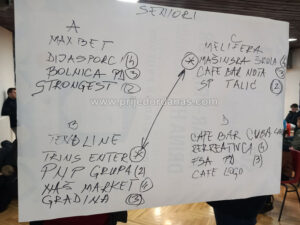 SENIORI
A
MAXBET
DIJASPORC (4)
BOLNICA PD (3)
STRONGEST (2)
C
MELIFERA
MAŠINSKA ŠKOLA (4)
CAFE BAR NOTA (3)
SP TALIĆ (2)
www.prijedordanas.com
B
LINE
TRINS ENTER
PMP GRUPA (2)
NAŠ MARKET (4)
GRADINA (3)
D
CAFE BAR CUBA (4)
FERRBATINCA
FSA PD (3)
CAFE LOGO